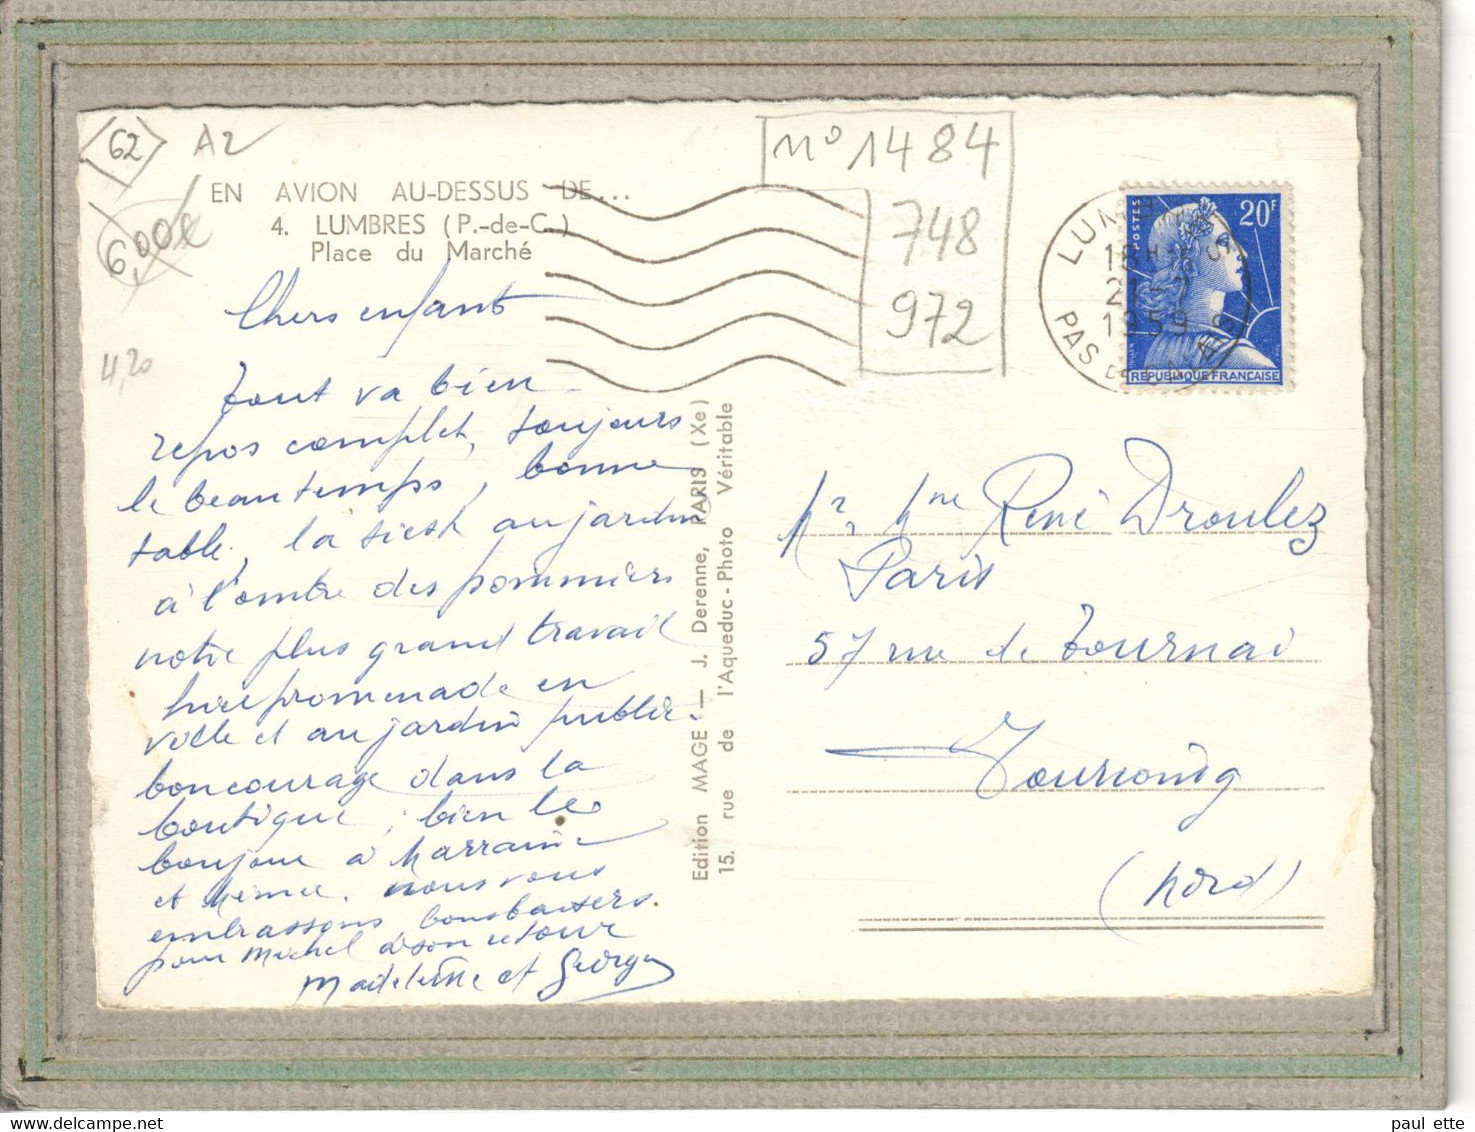 62
A2
6,00€
4,20
n° 1484
748
972
EN AVION AU-DESSUS DE...
4. LUMBRES (P.-de-C.)
Place du Marché
Chers enfants
Tout va bien
repos complet, toujours
le beau temps, bonne
table, la sieste au jardin
à l'ombre des pommiers
notre plus grand travail
promenade en
ville et au jardin public.
bon courage dans la
boutique, bien le
bonjour à Marraine
et Mémée. nous vous
embrassons bons baisers.
pour Michel à son retour
Madeleine et Georges
Edition MAGE — J. Derenne, PARIS (Xe)
15. rue de l'Aqueduc - Photo Véritable
LUMBRES
18H
21-7
1959
PAS DE CALAIS
POSTES
20F
MULLER
REPUBLIQUE FRANÇAISE
Mr, Mme René Droulez
Paris
57 rue de Tournai
Tourcoing
(Nord)
paul ette